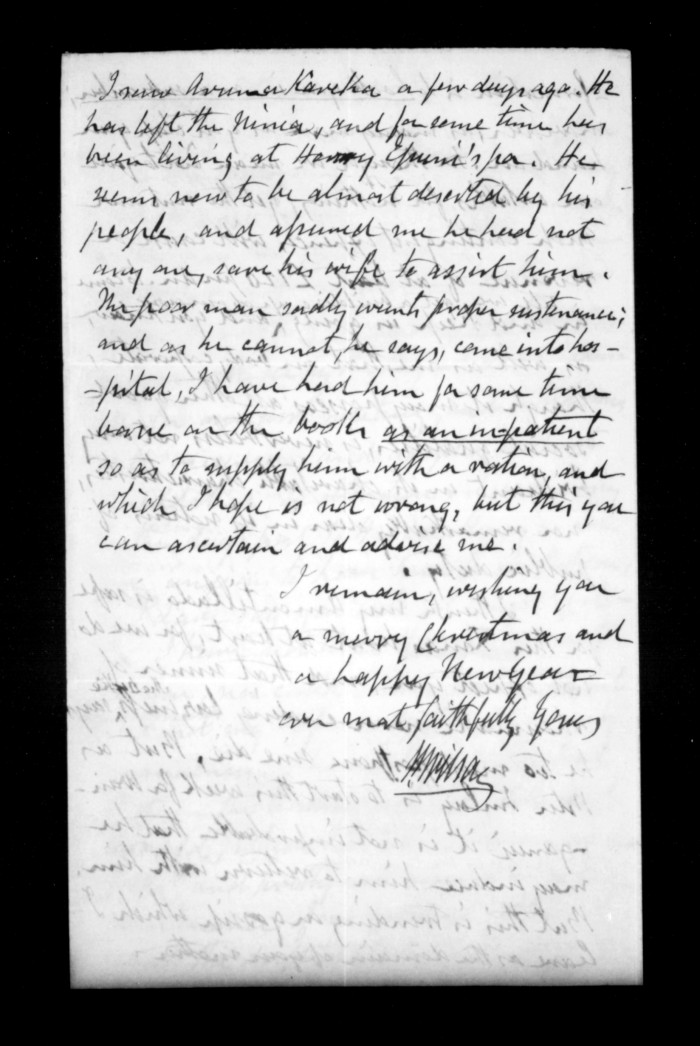 I saw Aruma Kareka a few days ago. He
has left the Ninia, and for some time has
been living at Henry Epuni's pa. He
seems now to be almost deserted by his
people, and assured me he had not
any one, save his wife to assist him.
The poor man sadly wants proper sustenance;
and as he cannot, he says, come into hos-
-pital, I have had him for some time
borne on the books as an in-patient
so as to supply him with a ration, and
which I hope is not wrong, but this you
can ascertain and advise me.
I remain, wishing you
a merry Christmas and
a happy New Year
ever most faithfully Yours